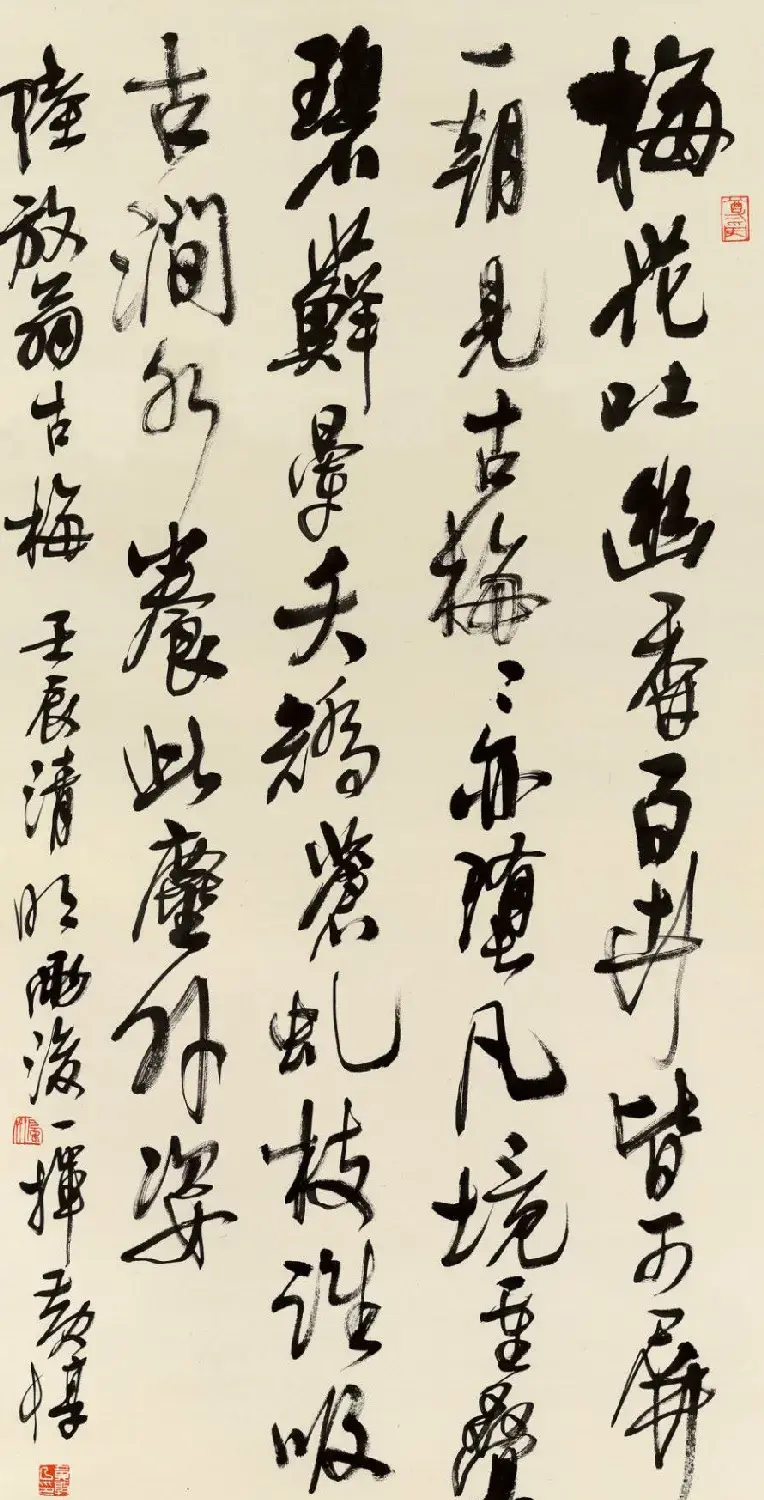 梅花吐幽香百卉皆可屏
一朝見古梅〻亦墮凡境重疊
碧蘚暈夭矯蒼虬枝誰吸
古澗水養此塵外姿
陸放翁古梅 壬辰清明雨後一揮 黃惇